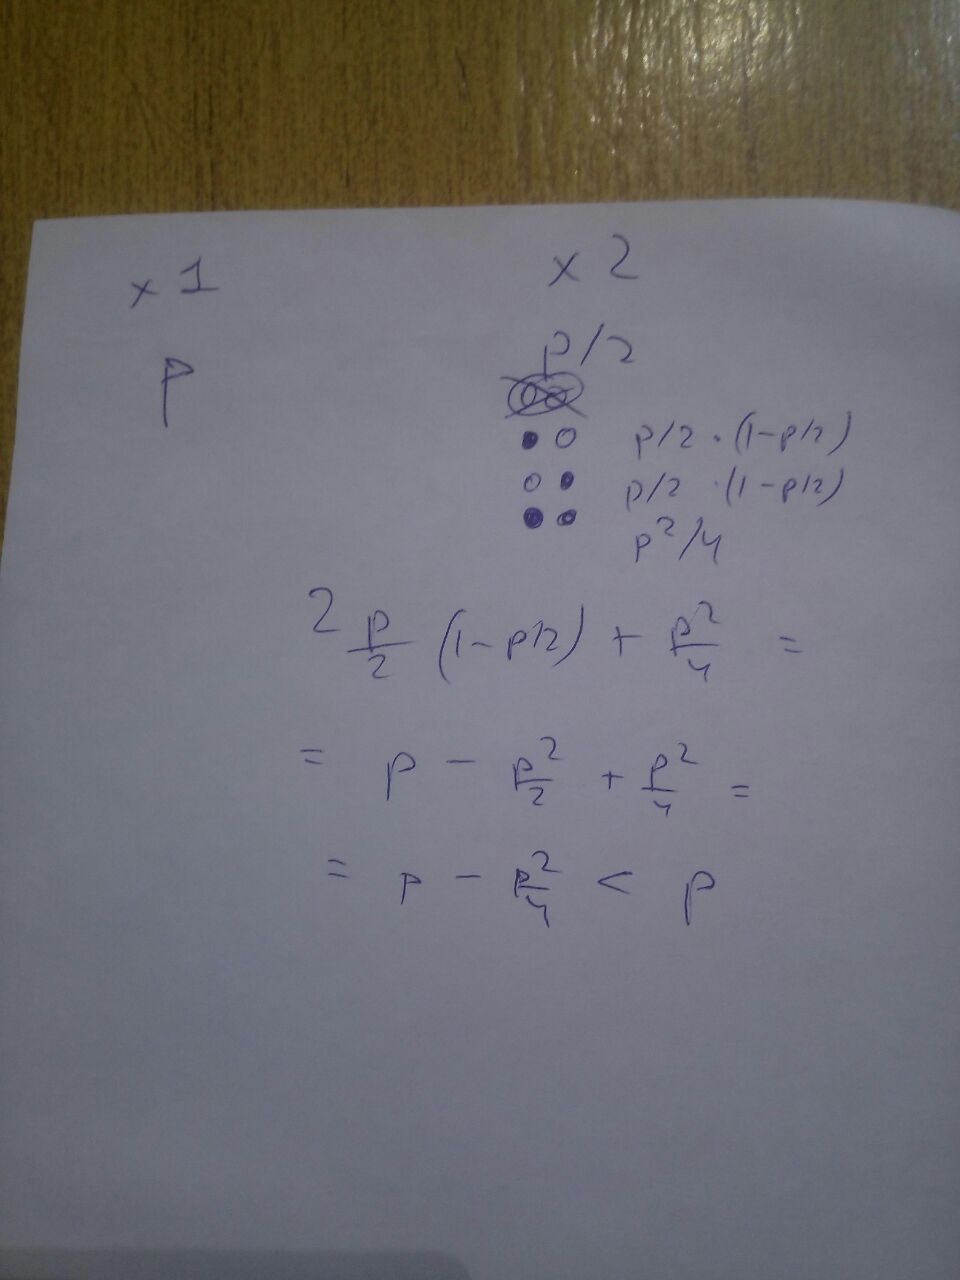 x 1
x 2
p
p/2
p/2 · (1-p/2)
p/2 · (1-p/2)
p²/4
2 p/2 (1-p/2) + p²/4 =
= p - p²/2 + p²/4 =
= p - p²/4 < p